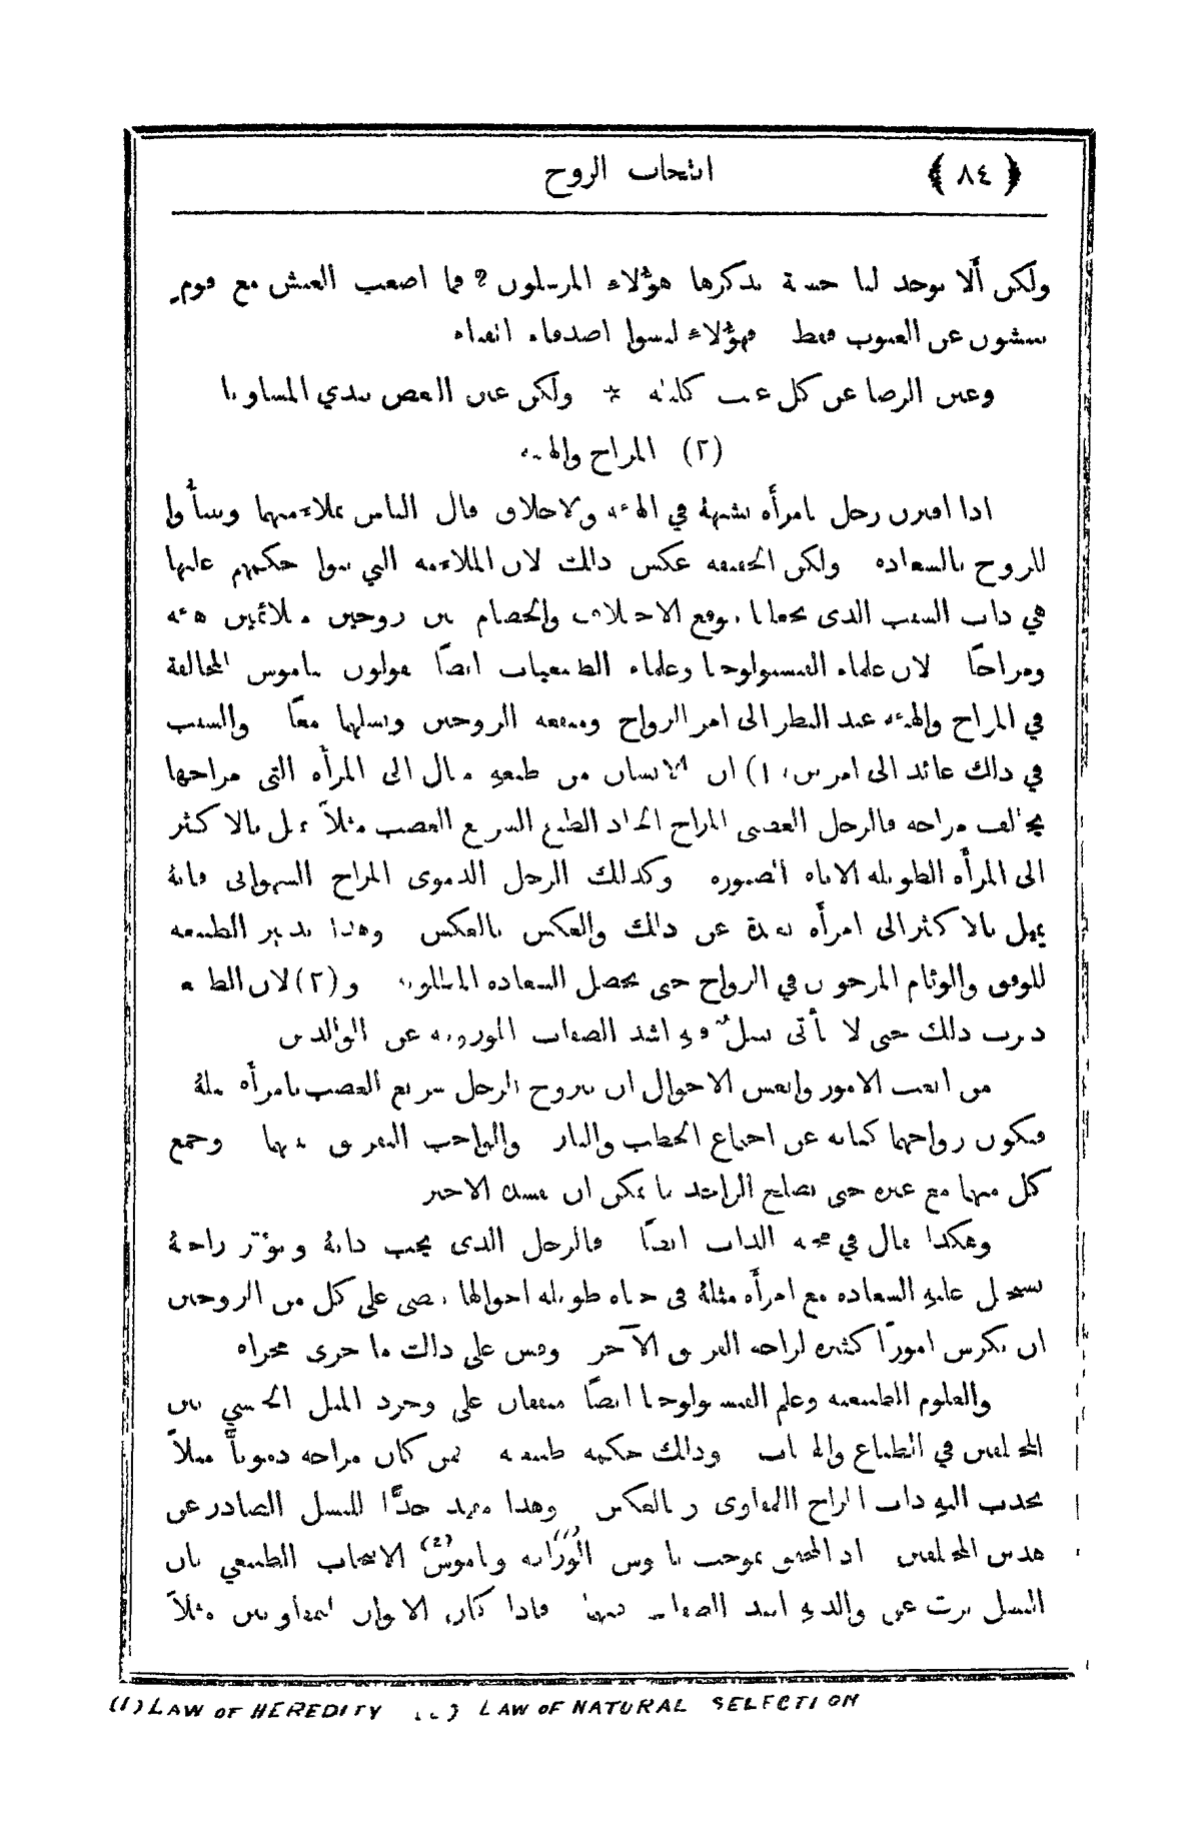 ( ٨٤ ) انتخاب الزوج
ولكن ألا يوجد لنا حسنة يذكرها هؤلاء المرسلون ? فما اصعب العيش مع قوم
يفتشون عن العيوب فقط فهؤلاء ليسوا اصدقاء اتقياء
وعين الرضا عن كل عيب كليلة * ولكن عين البغض تبدي المساويا
(٢) المزاج والهيئة
اذا اقترن رجل بامرأة تشبهه في الهيئة والاخلاق قال الناس بملاءمتهما وتنبأوا
للزوج بالسعادة ولكن الحقيقة عكس ذلك لان الملاءمة التي بنوا حكمهم عليها
هي ذات السبب الذي يجعلنا نتوقع الاختلاف والخصام بين زوجين متلائمين هيئة
ومزاجًا لان علماء الفسيولوجيا وعلماء الطبيعيات ايضًا يقولون بناموس المخالفة
في المزاج والهيئة عند النظر الى امر الزواج ومنفعة الزوجين ونسلهما معًا والسبب
في ذلك عائد الى امرين (١) ان الانسان من طبعه ميال الى المرأة التي مزاجها
يخالف مزاجه فالرجل العصبي المزاج الحاد الطبع السريع الغضب مثلاً يميل بالاكثر
الى المرأة الطويلة الاناة الصبورة وكذلك الرجل الدموي المزاج الشهواني فانه
يميل بالاكثر الى امرأة بعيدة عن ذلك والعكس بالعكس وهذا تدبير الطبيعة
للوفق والوئام المرجوين في الزواج حتى تحصل السعادة المطلوبة و(٢) لان الطبيعة
دبرت ذلك حتى لا يأتي نسل فيه اشد الصفات الموروثة عن الوالدين
من اتعب الامور واتعس الاحوال ان يتزوج الرجل سريع الغضب بامرأة مثله
فيكون زواجهما كناية عن اجتماع الحطب والنار والواجب التفريق بينهما وجمع
كل منهما مع غيره حتى يصلح الواحد ما يمكن ان يفسده الاخر
وهكذا يقال في محبة الذات ايضًا فالرجل الذي يحب ذاته ويؤثر راحته
تستحيل عليه السعادة مع امرأة مثله في حياة طويلة احوالها تقضي على كل من الزوجين
ان يكرس امورًا كثيرة لراحة الفريق الآخر وقس على ذلك ما جرى مجراه
والعلوم الطبيعية وعلم الفسيولوجيا ايضًا متفقان على وجود الميل الجنسي بين
المختلفين في الطباع والهيئات وذلك حكمة طبيعية فمن كان مزاجه دمويًا مثلاً
يجذب اليه ذات المزاج اللمفاوي وبالعكس وهذا مفيد جدًّا للنسل الصادر عن
هذين المختلفين اذ المحقق بموجب ناموس الوراثة (1) وناموس (2) الانتخاب الطبيعي بان
النسل يرث عن والديه اشد الصفات فيهما فاذا كان الابوان لمفاويين مثلاً
(1) LAW OF HEREDITY (2) LAW OF NATURAL SELECTION